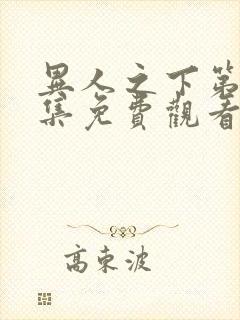 異人之下第
集免費觀看
高東波